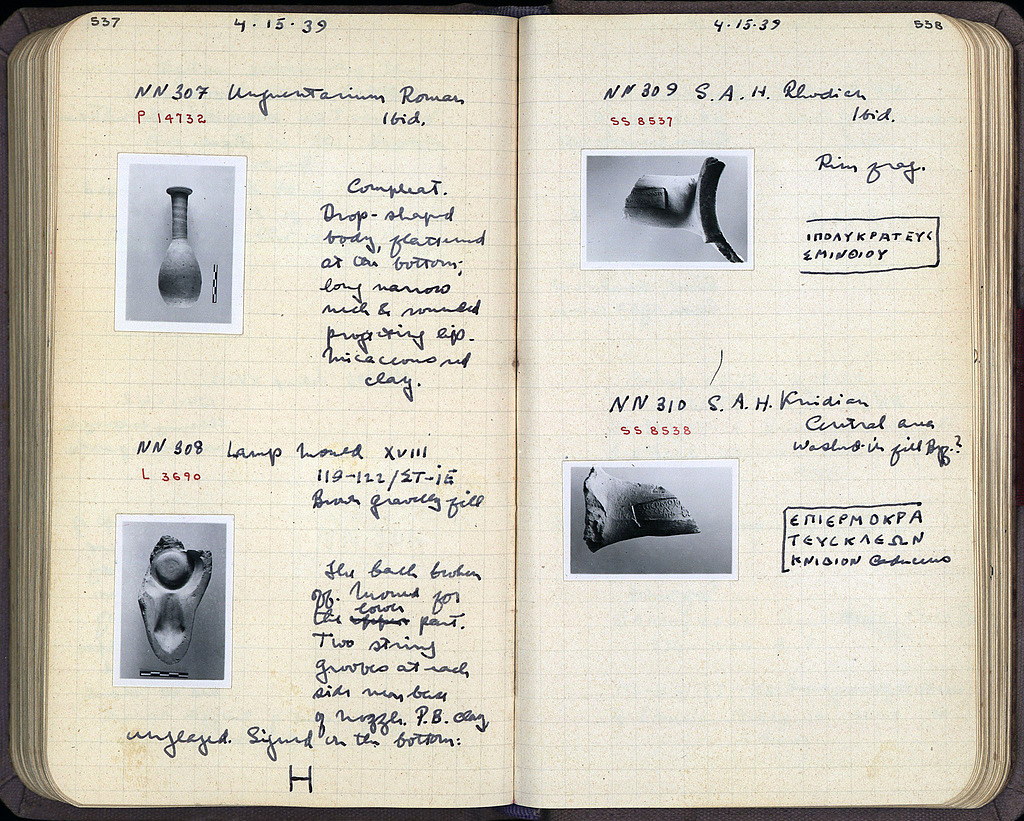 537
4·15·39
NN 307 Unguentarium Roman
P 14732
Ibid.
Compleat.
Drop-shaped
body, flattened
at the bottom;
long narrow
neck & rounded
projecting lip.
Micaceous red
clay.
NN 308 Lamp Mould XVIII
L 3690
119-122/ΣΤ-ΙΕ
Brown gravelly fill
The back broken
off. Mould for
lower
the upper part.
Two string
grooves at each
side near base
of nozzle. P.B. clay
unglazed. Signed on the bottom:
H
538
4·15·39
NN 309 S. A. H. Rhodian
SS 8537
Ibid.
Rim frag.
ΙΠΟΛΥΚΡΑΤΕΥΣ
ΣΜΙΝΘΙΟΥ
NN 310 S. A. H. Knidian
SS 8538
Central area
Washed-in fill Byz.?
ΕΠΙΕΡΜΟΚΡΑ
ΤΕΥΣΚΛΕΩΝ
ΚΝΙΔΙΟΝ Caduceus